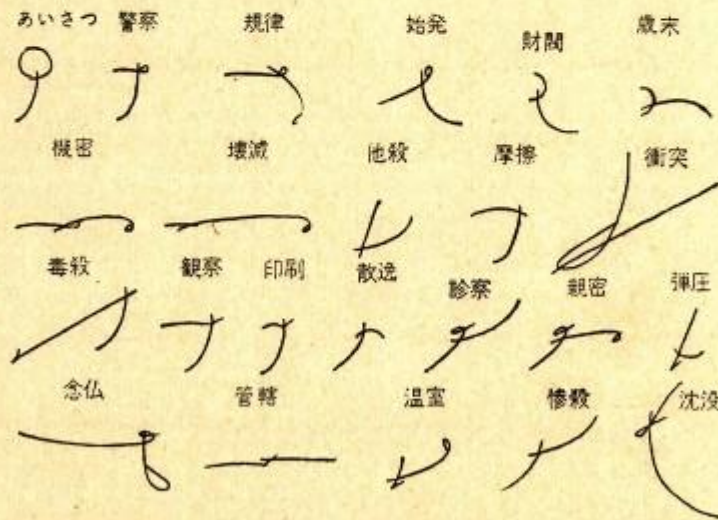 あいさつ 警察 規律 始発 財閥 歳末
機密 壊滅 他殺 摩擦 衝突
毒殺 観察 印刷 散逸 診察 親密 弾圧
念仏 管轄 温室 惨殺 沈没